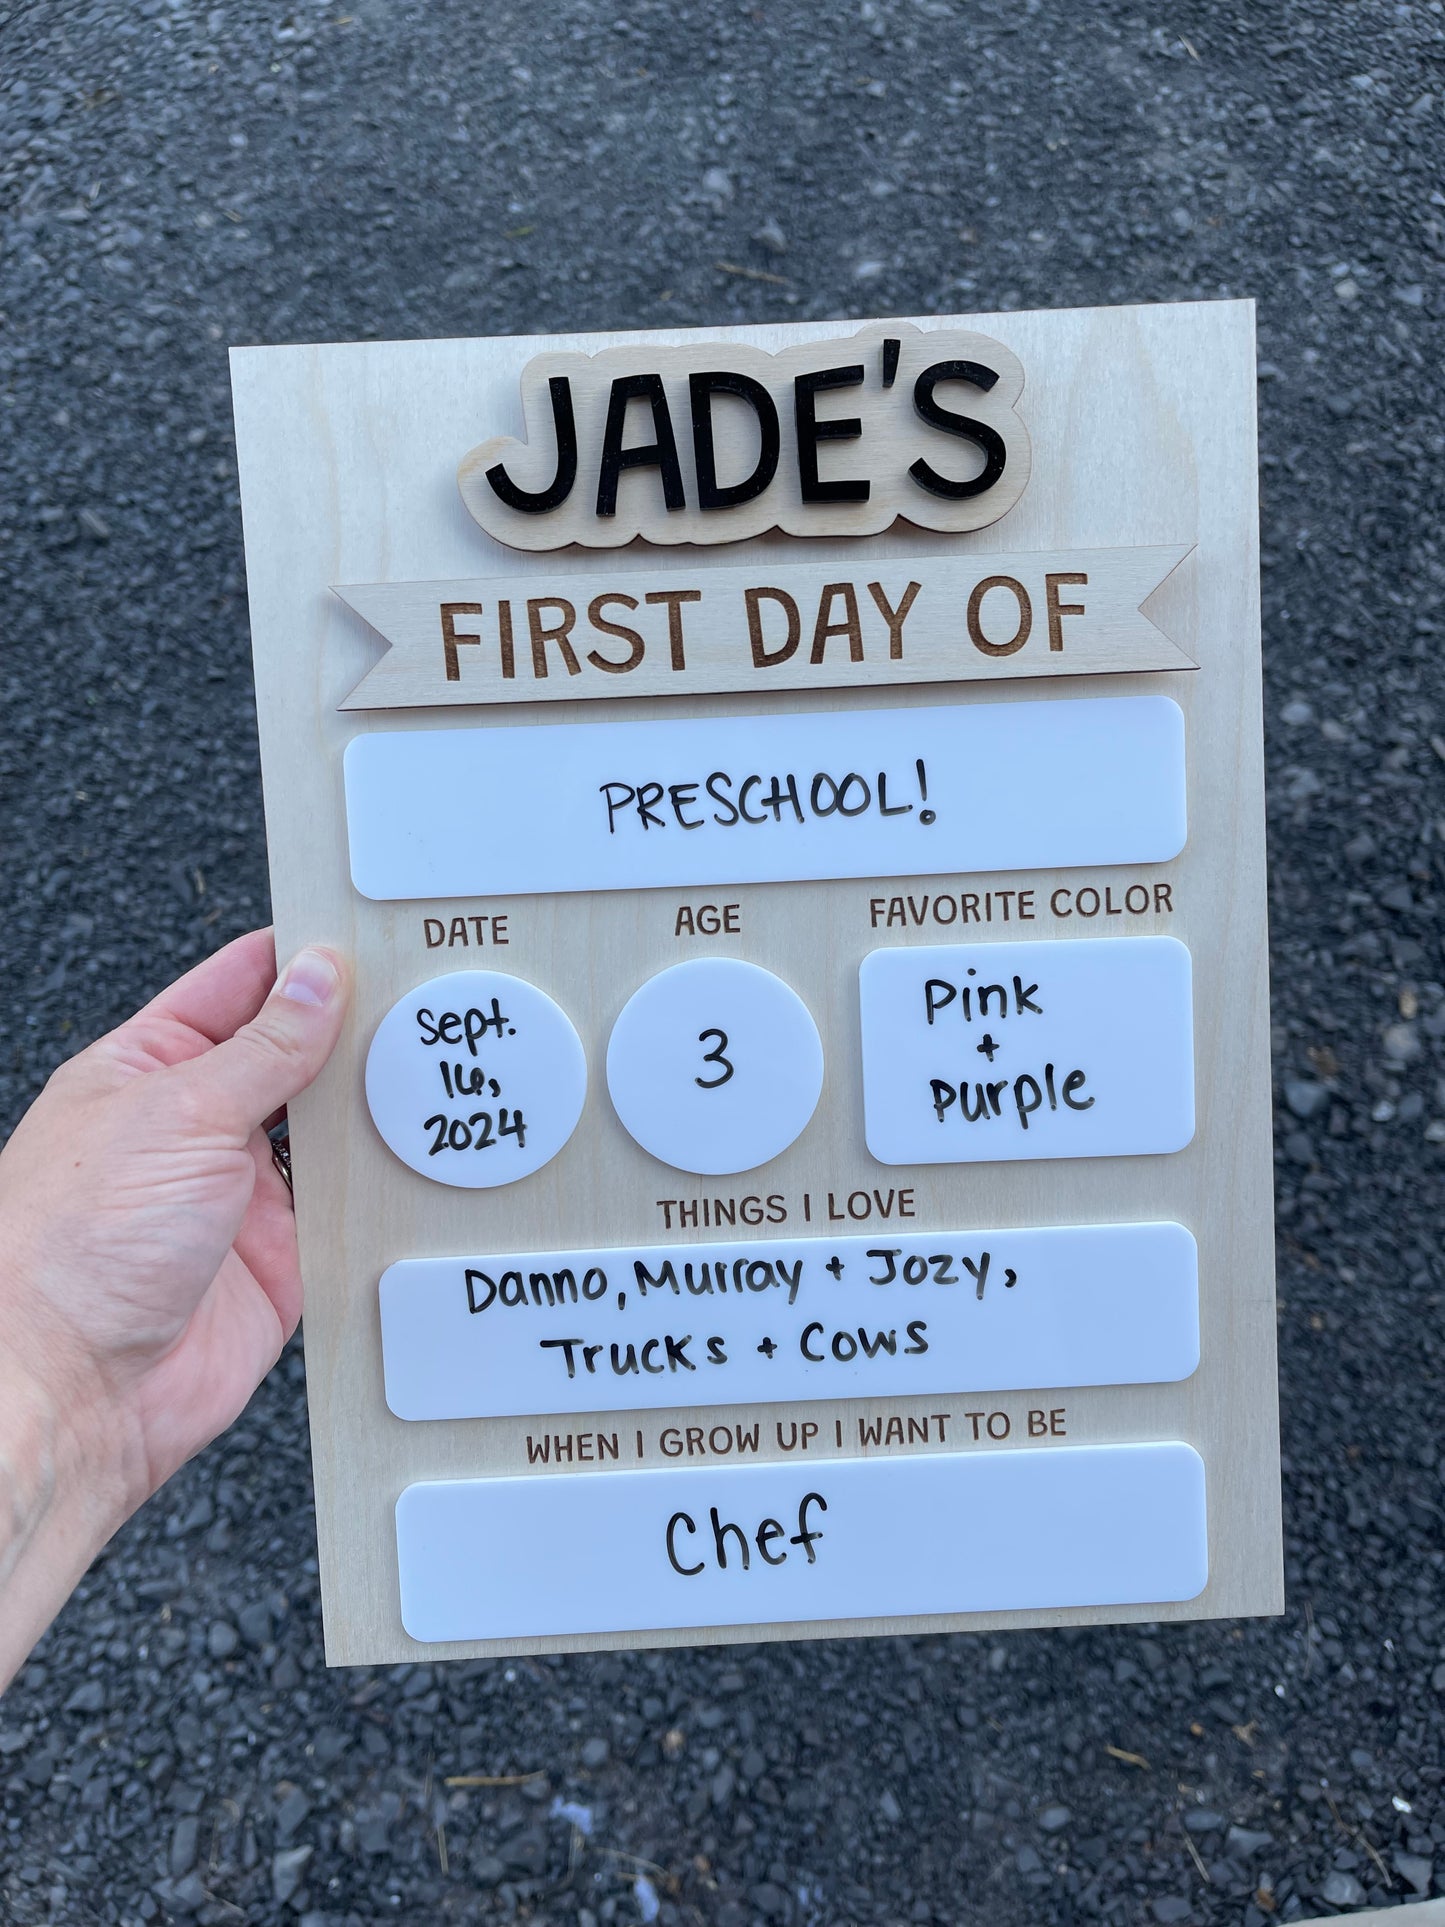 JADE'S
FIRST DAY OF
PRESCHOOL!
DATE
AGE
FAVORITE COLOR
Sept.
16,
2024
3
Pink
+
Purple
THINGS I LOVE
Danno, Murray + Jozy,
Trucks + Cows
WHEN I GROW UP I WANT TO BE
Chef